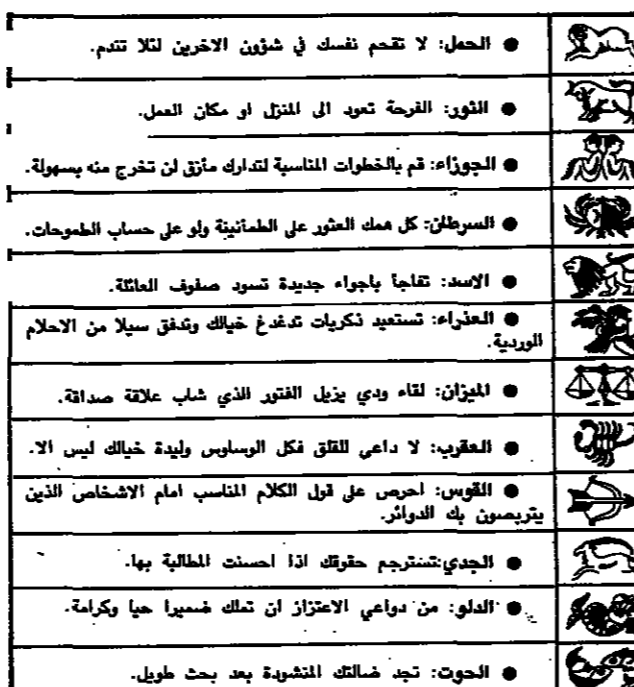 ● الحمل: لا تقحم نفسك في شؤون الاخرين لئلا تندم.
● الثور: الفرحة تعود الى المنزل او مكان العمل.
● الجوزاء: قم بالخطوات المناسبة لتدارك مأزق لن تخرج منه بسهولة.
● السرطان: كل همك العثور على الطمأنينة ولو على حساب الطموحات.
● الاسد: تفاجأ باجواء جديدة تسود صفوف العائلة.
● العذراء: تستعيد ذكريات تدغدغ خيالك وتدفق سيلا من الاحلام
الوردية.
● الميزان: لقاء ودي يزيل الفتور الذي شاب علاقة صداقة.
● العقرب: لا داعي للقلق فكل الوساوس وليدة خيالك ليس الا.
● القوس: احرص على قول الكلام المناسب امام الاشخاص الذين
يتربصون بك الدوائر.
● الجدي: تسترجع حقوقك اذا احسنت المطالبة بها.
● الدلو: من دواعي الاعتزاز ان تملك ضميرا حيا وكرامة.
● الحوت: تجد ضالتك المنشودة بعد بحث طويل.